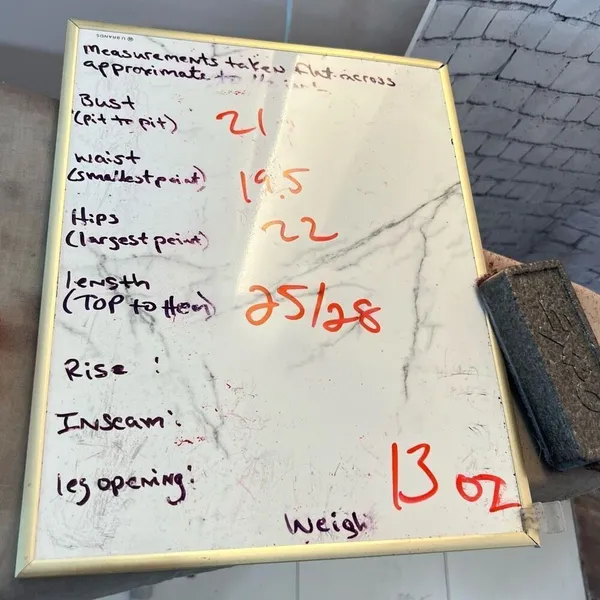 U BRANDS
measurements taken flat across
approximate
Bust
(pit to pit) 21
waist
(smallest point) 19.5
Hips
(largest point) 22
length
(TOP to Hem) 25/28
Rise :
Inseam:
leg opening:
13 oz
Weigh